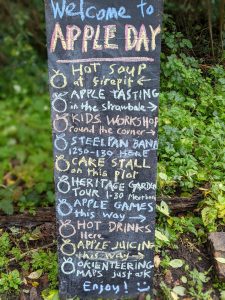 Welcome to
APPLE DAY
HOT SOUP
at firepit ←
APPLE TASTING
in the strawbale →
KIDS WORKSHOP
round the corner →
STEELPAN BAND
1250-130 HERE
CAKE STALL
on this plot
HERITAGE GARDEN
TOUR 1.30
APPLE GAMES
this way →
HOT DRINKS
Here
APPLE JUICING
this way →
ORIENTEERING
MAPS just ask
Enjoy!